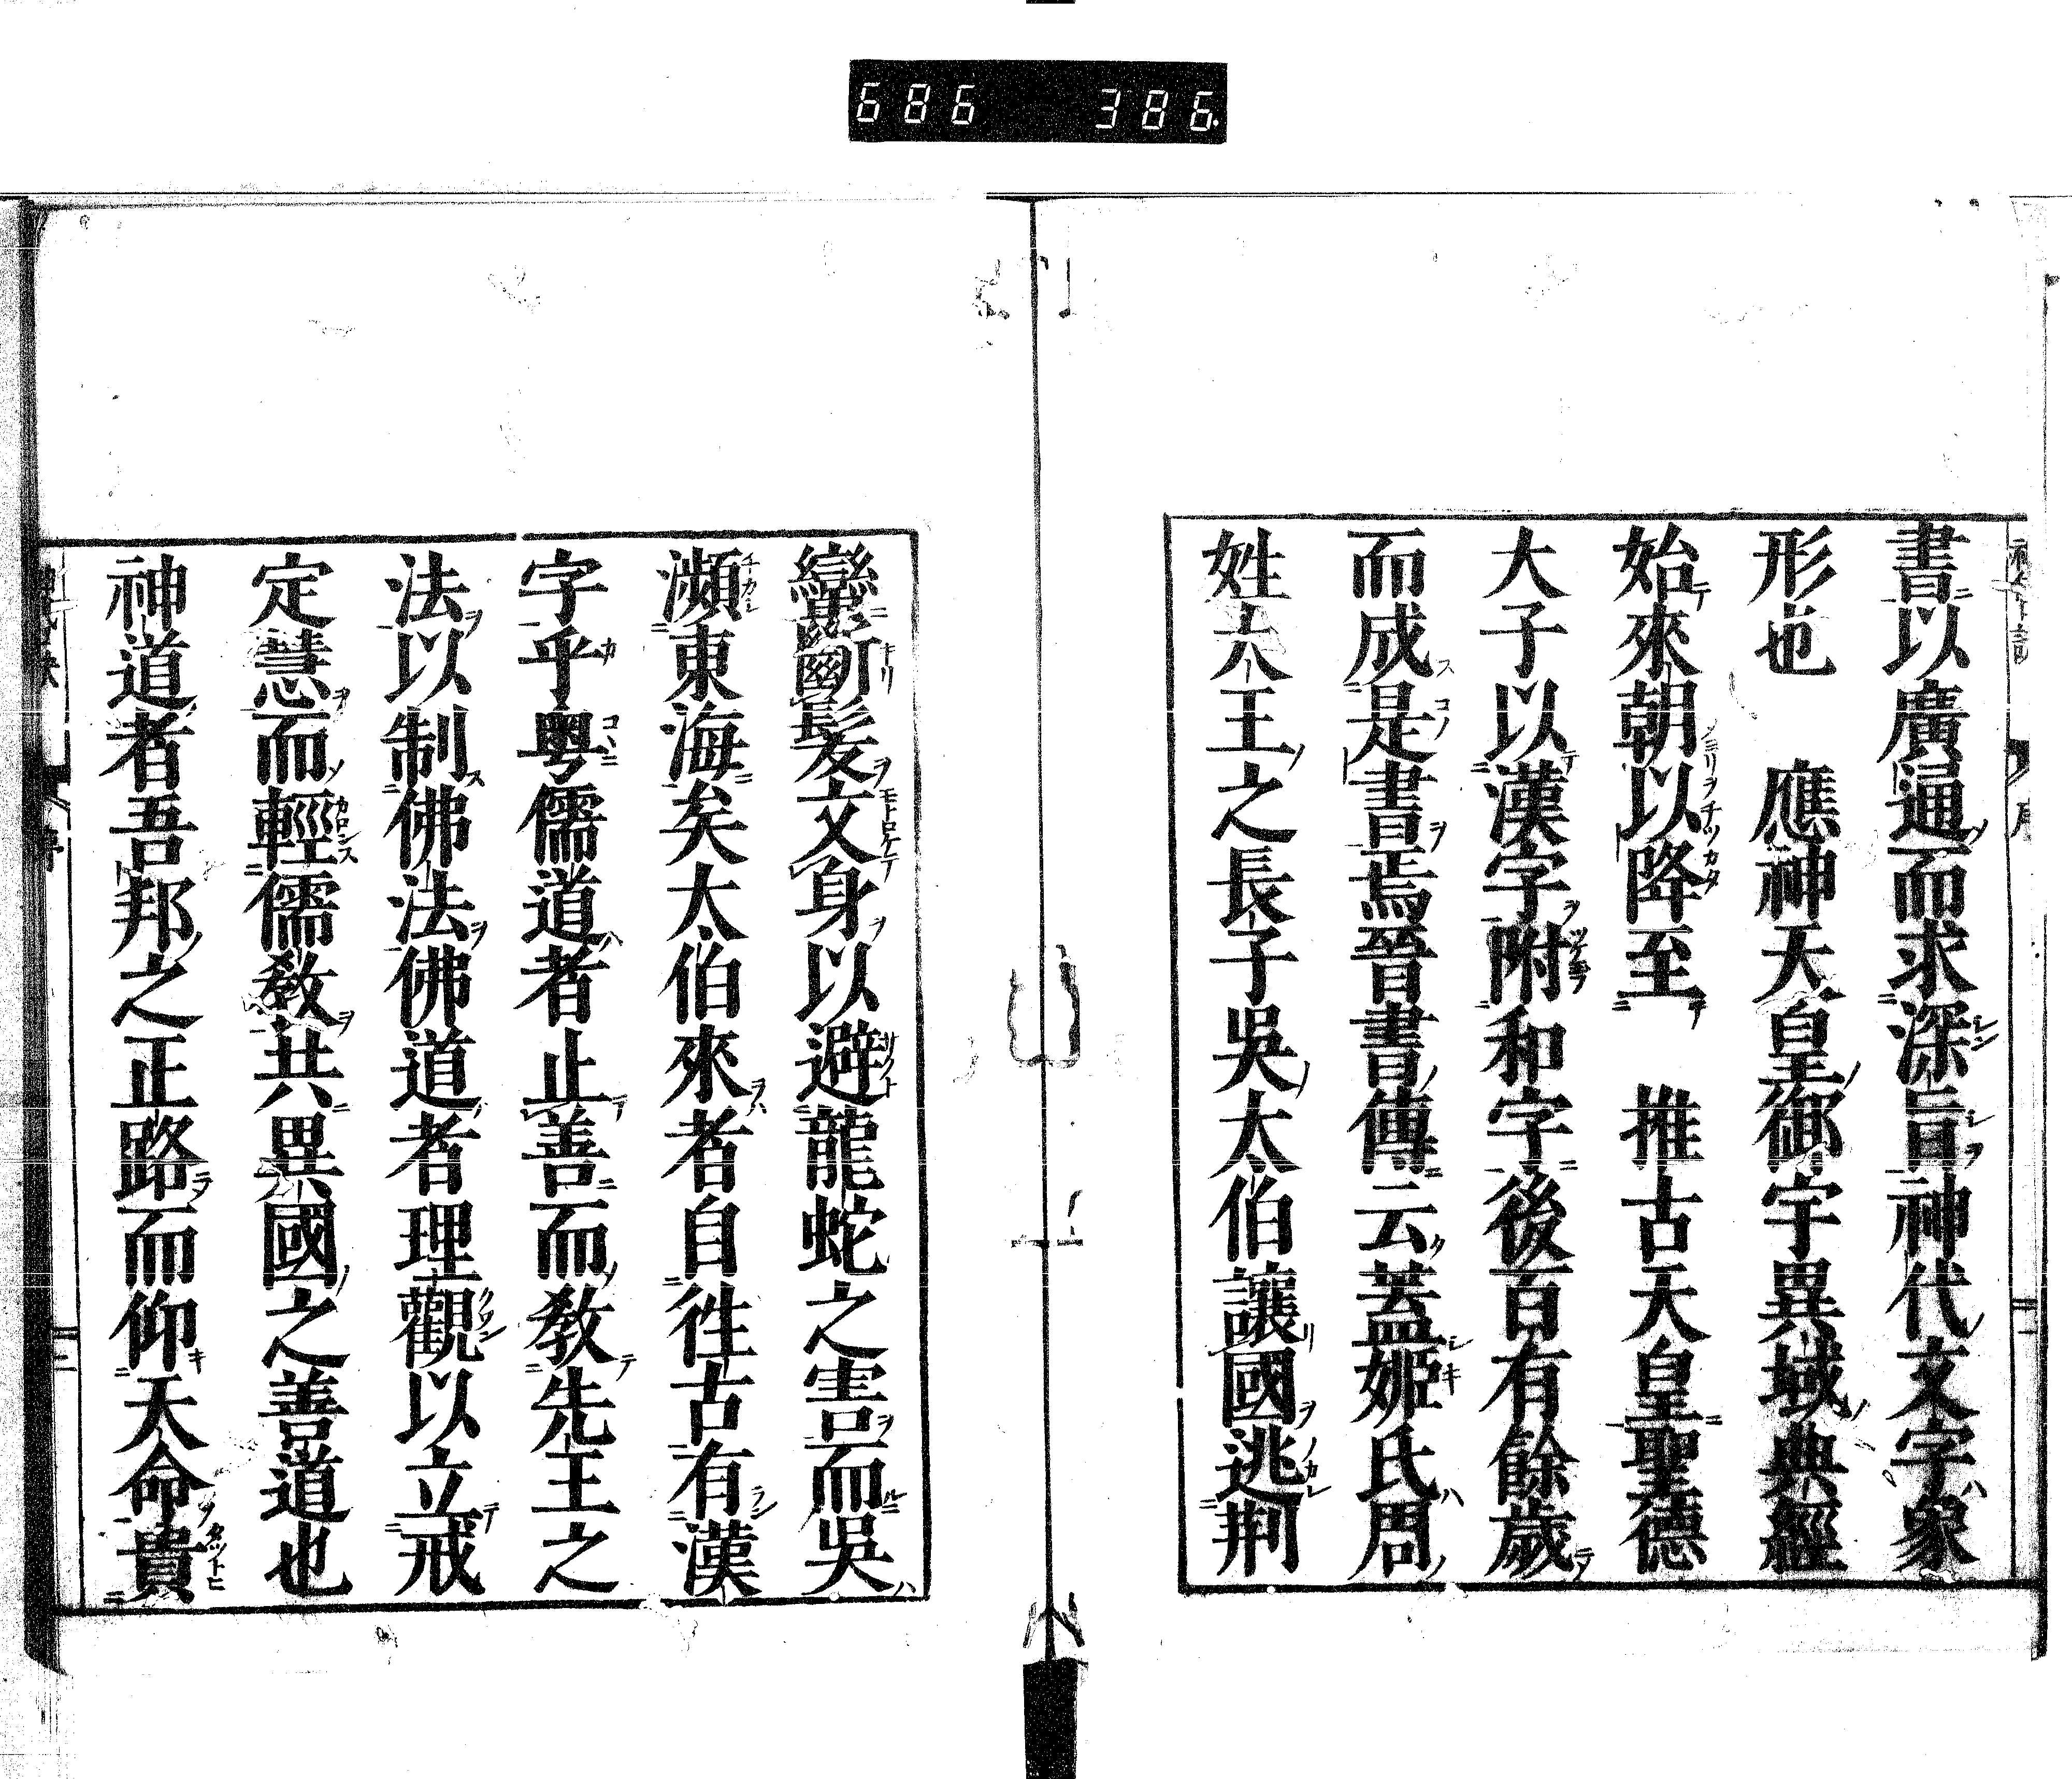 686 386
書以廣通而求深旨神代文字象
形也　應神天皇御宇異域典經
始來朝以降至　推古天皇聖德
大子以漢字附和字後百有餘歲
而成是書焉晉書傳云蓋姬氏周
姓大王之長子吳太伯讓國逃荆
蠻斷髮文身以避龍蛇之害而吳
瀕東海矣太伯來者自徃古有漢
字乎粤儒道者止善而敎先王之
法以制佛法佛道者理觀以立戒
定慧而輕儒敎共異國之善道也
神道者吾邦之正路而仰天命貴